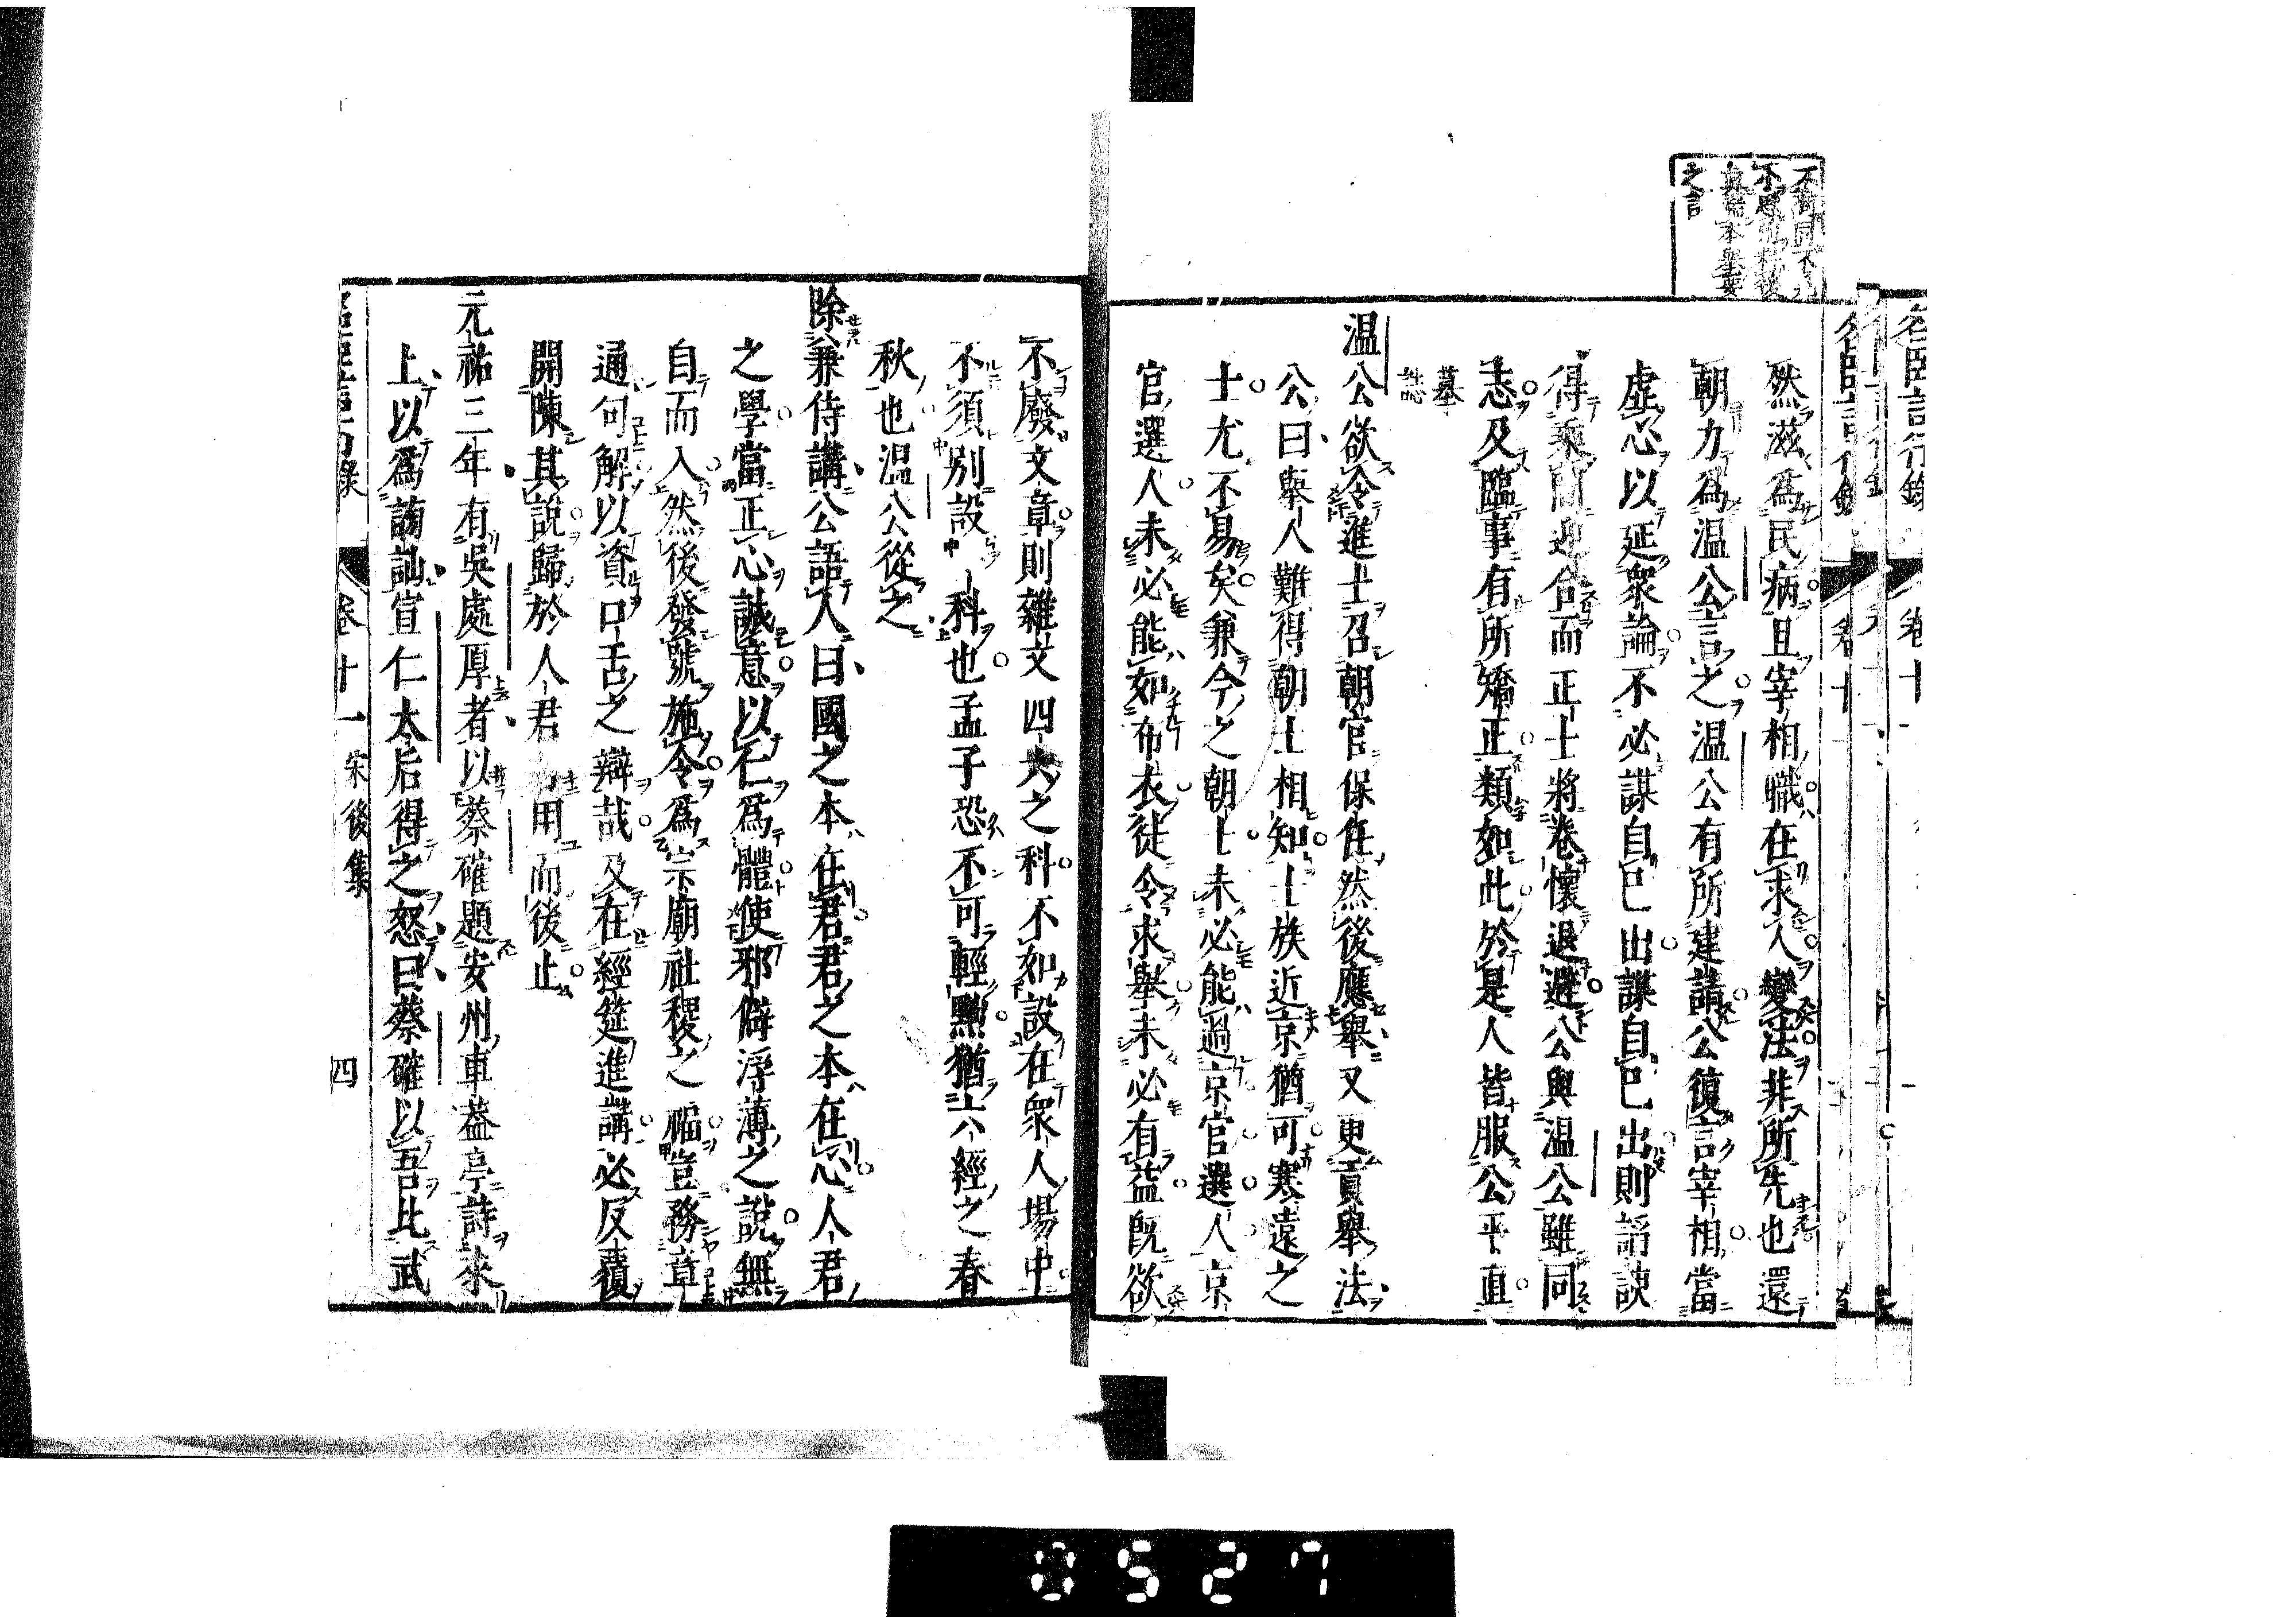 名臣言行錄
卷十
名臣言行錄
卷十
不苟同不
不
本與安
之言
然滋爲民病且宰相職在求人變法非所先也還
朝力爲温公言之温公有所建請公復言宰相當
虛心以延衆論不必謀自己出謀自己出則謟諛
得乘間迎合而正士將卷懷退避公與温公雖同
志及臨事有所矯正類如此於是人皆服公平直
墓誌
温公欲令進士召朝官保任然後應舉又更貢舉法
公曰舉人難得朝士相知士族近京猶可寒遠之
士尤不易矣兼今之朝士未必能過京官選人京
官選人未必能如布衣徒令求舉未必有益既欲
不廢文章則雜文四六之科不如設在衆人場中
不須別設一科也孟子恐不可輕黜猶六經之春
秋也温公從之
除兼侍講公語人曰國之本在君君之本在心人君
之學當正心誠意以仁爲體使邪僻浮薄之說無
自而入然後發號施令爲宗廟社稷之福豈務章
通句解以資口舌之辯哉及在經筵進講必反覆
開陳其說歸於人君用而後止
元祐三年有吳處厚者以蔡確題安州車蓋亭詩來
上以爲謗訕宣仁太后得之怒曰蔡確以吾比武
卷十一 宋後集 四
0527